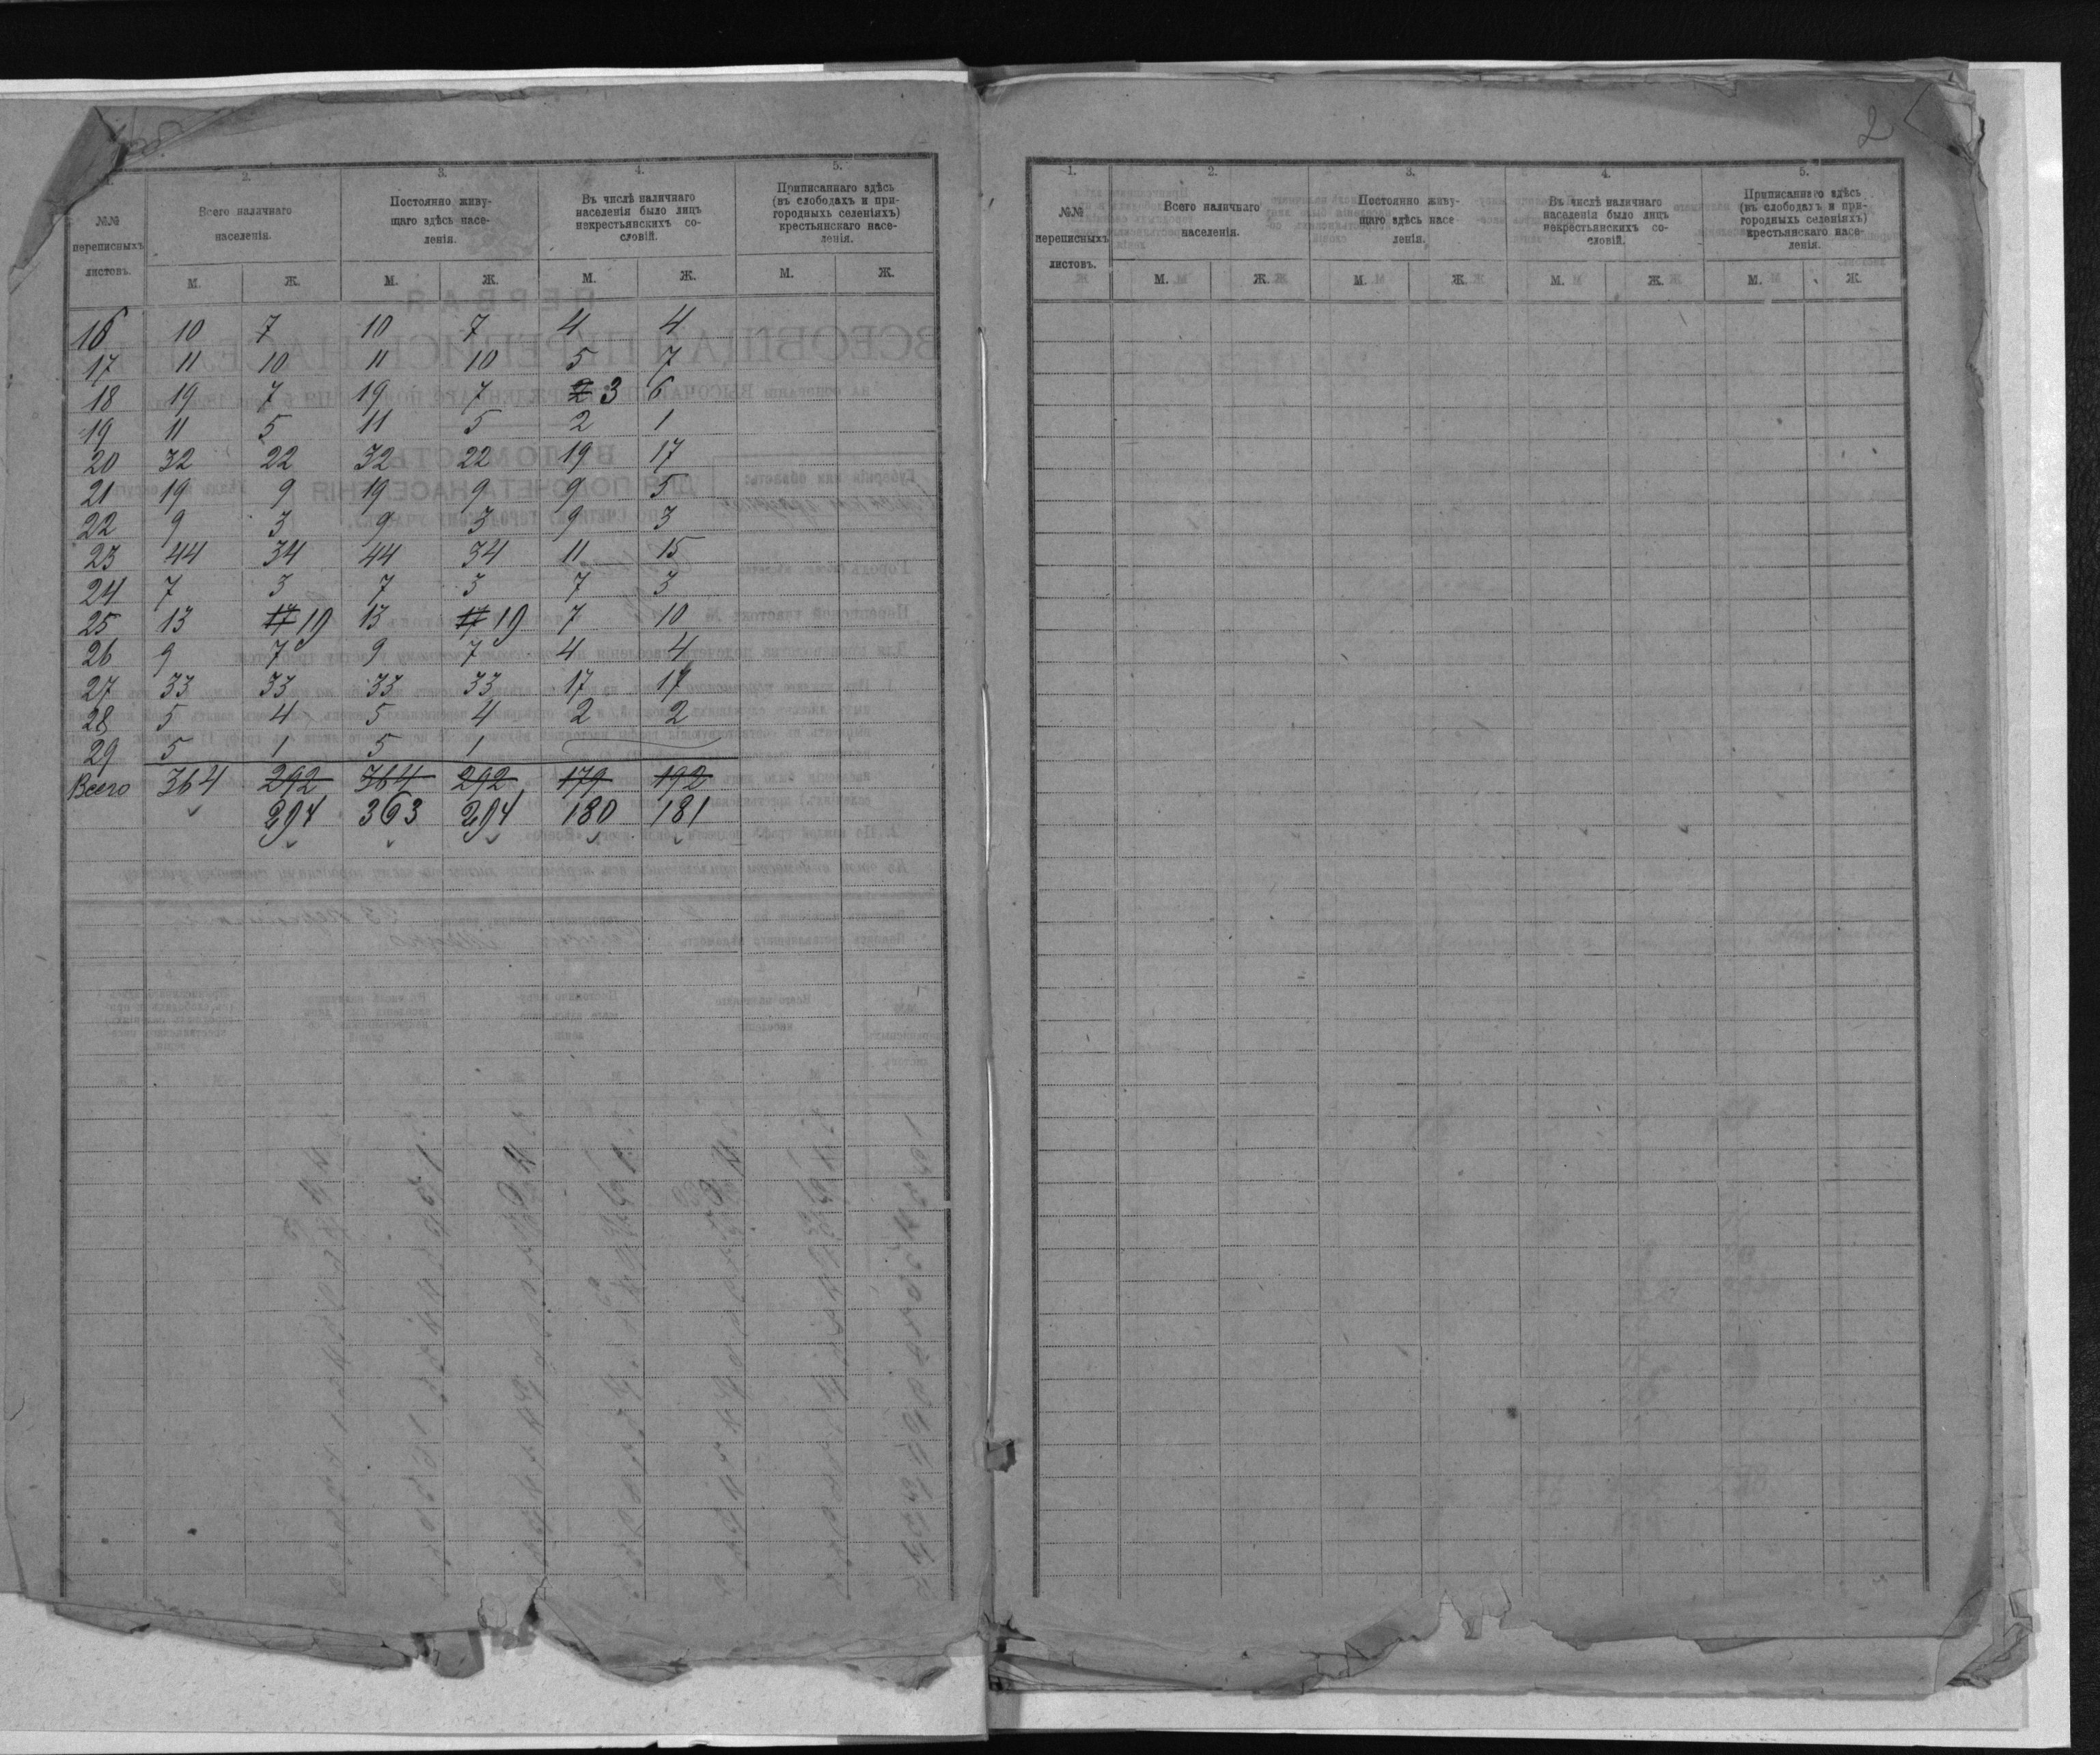 1. 2. 3. 4. 5.
№№ переписныхъ листовъ.
Всего наличнаго населенія.
Постоянно живу-
щаго здѣсь насе-
ленія.
Въ числѣ наличнаго
населенія было лицъ
некрестьянскихъ со-
словій.
Приписаннаго здѣсь
(въ слободахъ и при-
городныхъ селеніяхъ)
крестьянскаго насе-
ленія.
М. Ж. М. Ж. М. Ж. М. Ж.
16 10 7 10 7 4 4
17 11 10 11 10 5 7
18 19 7 19 7 2 3 6
19 11 5 11 5 2 1
20 32 22 32 22 19 17
21 19 9 19 9 9 5
22 9 3 9 3 9 3
23 44 34 44 34 11 15
24 7 3 7 3 7 3
25 13 17 19 13 17 19 7 10
26 9 7 9 7 4 4
27 33 33 33 33 17 17
28 5 4 5 4 2 2
29 5 1 5 1
Всего 364 292 364 292 179 192
294 363 294 180 181
2
1. 2. 3. 4. 5.
№№ переписныхъ листовъ.
Всего наличнаго населенія.
Постоянно живу-
щаго здѣсь насе
ленія.
Въ числѣ наличнаго
населенія было лицъ
некрестьянскихъ со-
словій.
Приписаннаго здѣсь
(въ слободахъ и при-
городныхъ селеніяхъ)
крестьянскаго насе-
ленія.
М. Ж. М. Ж. М. Ж. М. Ж.